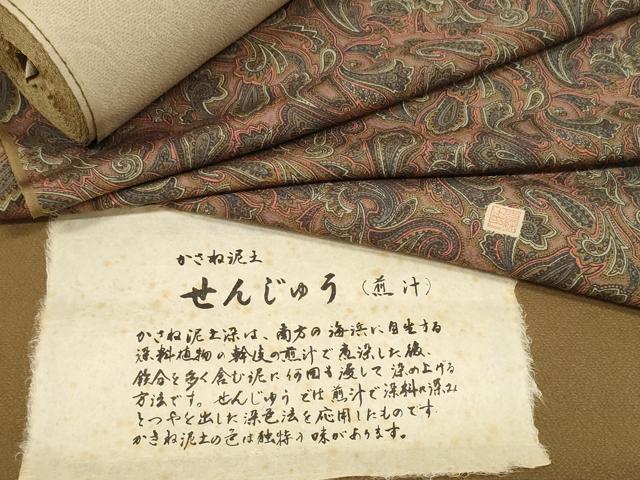 かさね泥土
せんじゅう（煎汁）
かさね泥土染は、南方の海浜に自生する
染料植物の幹皮の煎汁で煮染した後、
鉄分を多く含む泥に何回も浸して染め上げる
方法です。せんじゅうでは煎汁で染料に深み
とつやを出した染色法を応用したものです
かさね泥土の色は独特の味があります。